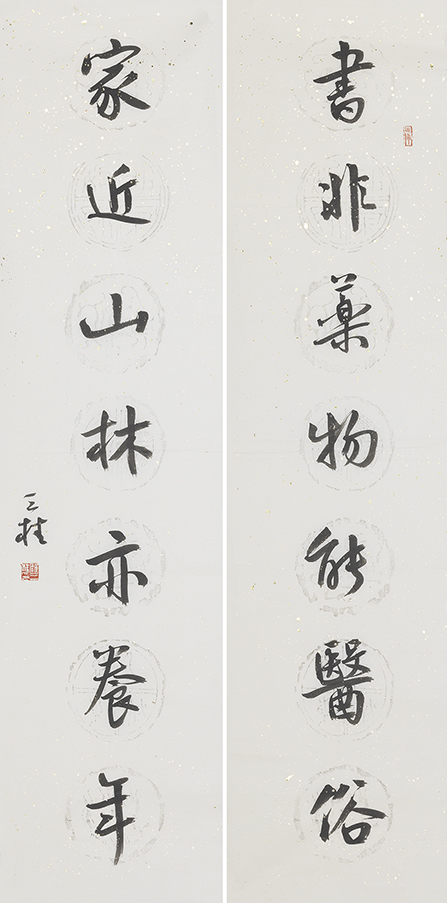 書非藥物能醫俗
家近山林亦養年
三桂